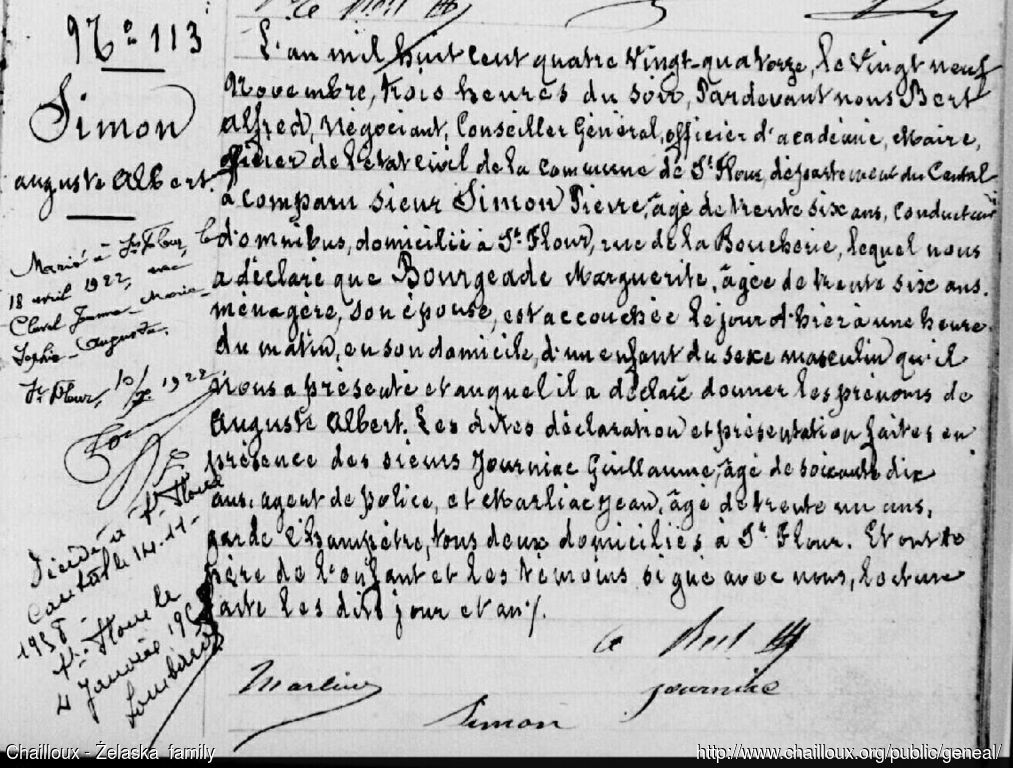 N° 113
Simon
auguste Albert.
Marié à St Flour, le
18 avril 1922, avec
Clavel Jeanne Marie
Sophie Augusta.
St Flour, 10/7 1922
Décédé à St Flour
Cantal le 14.11.
1958
St Flour le
4 Janvier
L'an mil huit cent quatre vingt-quatorze, le vingt neuf
Novembre, trois heures du soir, Pardevant nous Bert
Alfred, Négociant, Conseiller Général, officier d'académie, Maire,
officier de l'état civil de la commune de St Flour, département du Cantal
à comparu sieur Simon Pierre, âgé de trente six ans, conducteur
d'omnibus, domicilié à St Flour, rue de la Boucherie, lequel nous
a déclaré que Bourgeade Marguerite, âgée de trente six ans.
ménagère, son épouse, est accouchée le jour d'hier à une heure
du matin, en son domicile, d'un enfant du sexe masculin qu'il
nous a présenté et auquel il a déclaré donner les prénoms de
Auguste Albert. Les dites déclaration et présentation faites en
présence des sieurs Journiac Guillaume, âgé de soixante dix
ans, agent de police, et Marliac Jean, âgé de trente un ans,
garde champêtre, tous deux domiciliés à St Flour. Et ont le
père de l'enfant et les témoins signé avec nous, lecture
faite les dits jour et an /.
Bert
journiac
Simon
Chailloux - Želaska family
http://www.chailloux.org/public/geneal/